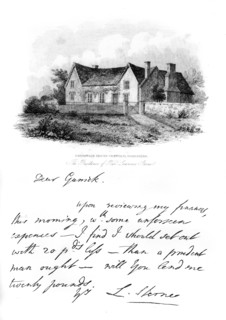 (The Residence of Rev.d Lawrence Sterne)
Dear Garrick.
upon reviewing my finances,
this morning, wth some unforseen
expences — I find I should set out
with 20 pds less — than a prudent
man ought — will You lend me
twenty pounds.
Yrs L. Sterne